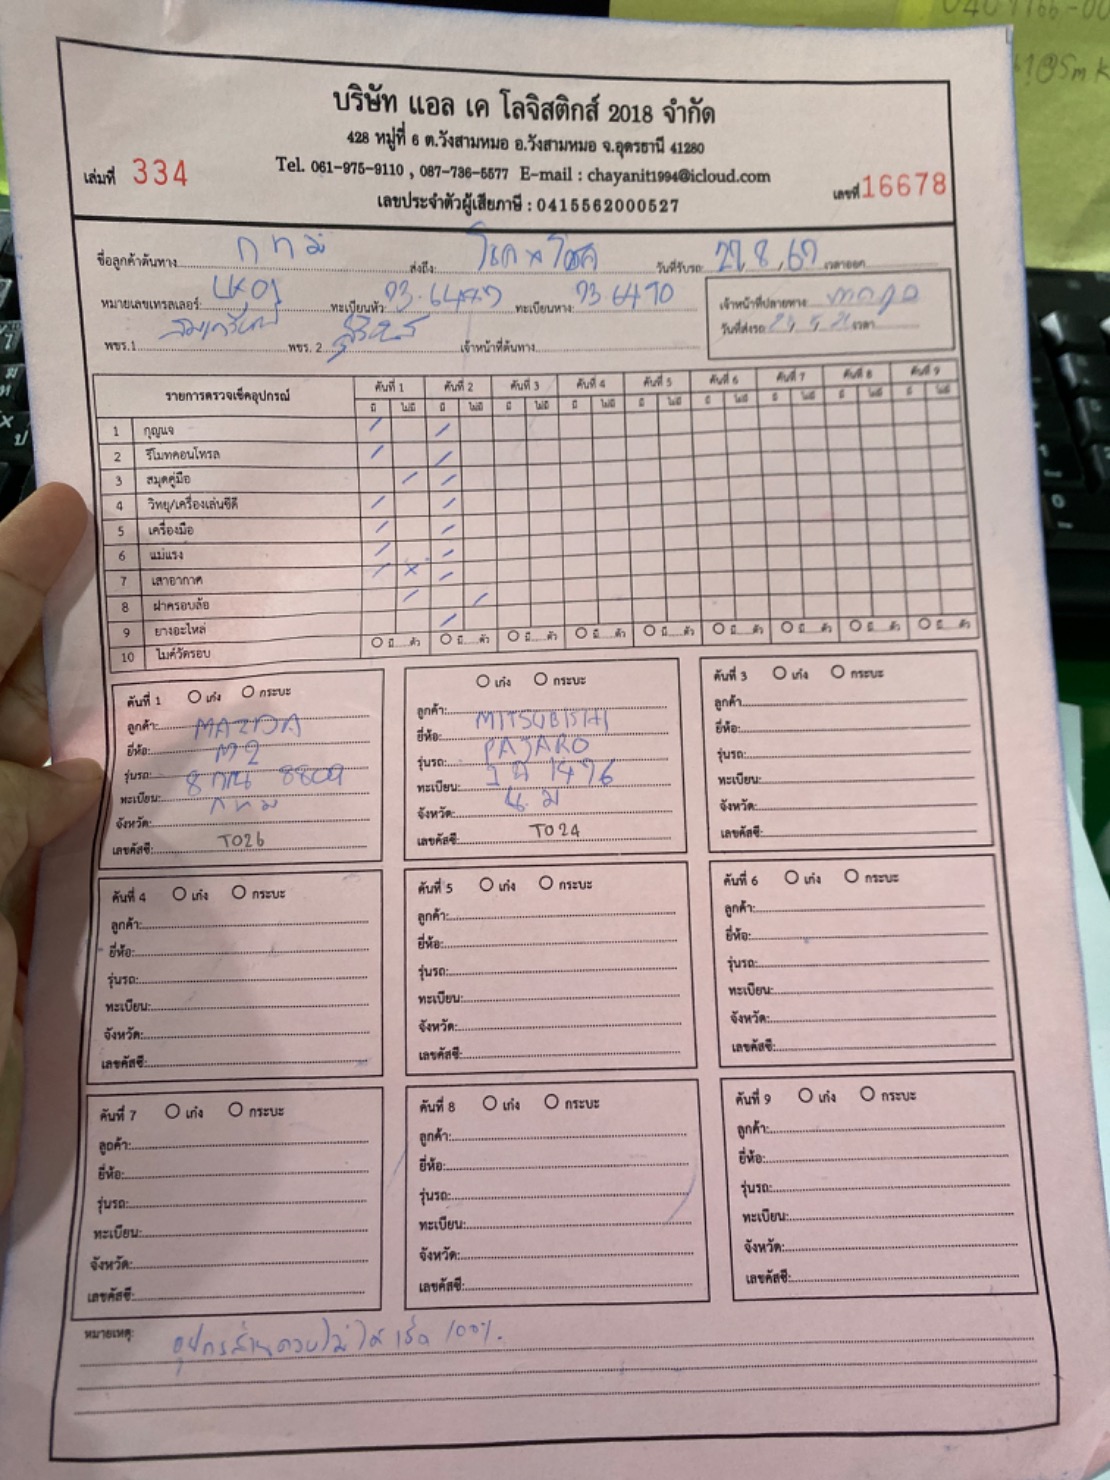 บริษัท แอล เค โลจิสติกส์ 2018 จำกัด
428 หมู่ที่ 6 ต.วังสามหมอ อ.วังสามหมอ จ.อุดรธานี 41280
Tel. 061-975-9110 , 087-736-5577 E-mail : chayanit1994@icloud.com
เล่มที่ 334 เลขที่ 16678
เลขประจำตัวผู้เสียภาษี : 0415562000527
ชื่อลูกค้าต้นทาง กทม ส่งถึง: วันที่รับรถ: เวลาออก
หมายเลขเทรลเลอร์: ทะเบียนหัว: ทะเบียนหาง: 73 6470 เจ้าหน้าที่ปลายทาง
พขร.1 พขร. 2 เจ้าหน้าที่ต้นทาง วันที่ส่งรถ: เวลา
รายการตรวจเช็คอุปกรณ์ คันที่ 1 คันที่ 2 คันที่ 3 คันที่ 4 คันที่ 5 คันที่ 6 คันที่ 7 คันที่ 8 คันที่ 9
มี ไม่มี มี ไม่มี มี ไม่มี มี ไม่มี มี ไม่มี มี ไม่มี มี ไม่มี มี ไม่มี มี ไม่มี
1 กุญแจ
2 รีโมทคอนโทรล
3 สมุดคู่มือ
4 วิทยุ/เครื่องเล่นซีดี
5 เครื่องมือ
6 แม่แรง
7 เสาอากาศ
8 ฝาครอบล้อ
9 ยางอะไหล่
10 ไมค์วัดรอบ มี ตัว มี ตัว มี ตัว มี ตัว มี ตัว มี ตัว มี ตัว มี ตัว มี ตัว
คันที่ 1 เก๋ง กระบะ
ลูกค้า:
ยี่ห้อ: MAZDA
รุ่นรถ: M2
ทะเบียน: 8 กน 8809
จังหวัด: กทม
เลขคัสซี: T026
เก๋ง กระบะ
ลูกค้า:
ยี่ห้อ: MITSUBISHI
รุ่นรถ: PAJARO
ทะเบียน: 1476
จังหวัด: น.ม
เลขคัสซี: T024
คันที่ 3 เก๋ง กระบะ
ลูกค้า
ยี่ห้อ:
รุ่นรถ:
ทะเบียน:
จังหวัด:
เลขคัสซี:
คันที่ 4 เก๋ง กระบะ
ลูกค้า:
ยี่ห้อ:
รุ่นรถ:
ทะเบียน:
จังหวัด:
เลขคัสซี:
คันที่ 5 เก๋ง กระบะ
ลูกค้า:
ยี่ห้อ:
รุ่นรถ:
ทะเบียน:
จังหวัด:
เลขคัสซี:
คันที่ 6 เก๋ง กระบะ
ลูกค้า:
ยี่ห้อ:
รุ่นรถ:
ทะเบียน:
จังหวัด:
เลขคัสซี:
คันที่ 7 เก๋ง กระบะ
ลูกค้า:
ยี่ห้อ:
รุ่นรถ:
ทะเบียน:
จังหวัด:
เลขคัสซี:
คันที่ 8 เก๋ง กระบะ
ลูกค้า:
ยี่ห้อ:
รุ่นรถ:
ทะเบียน:
จังหวัด:
เลขคัสซี:
คันที่ 9 เก๋ง กระบะ
ลูกค้า:
ยี่ห้อ:
รุ่นรถ:
ทะเบียน:
จังหวัด:
เลขคัสซี:
หมายเหตุ: ไม่ได้ เช็ค 100%.